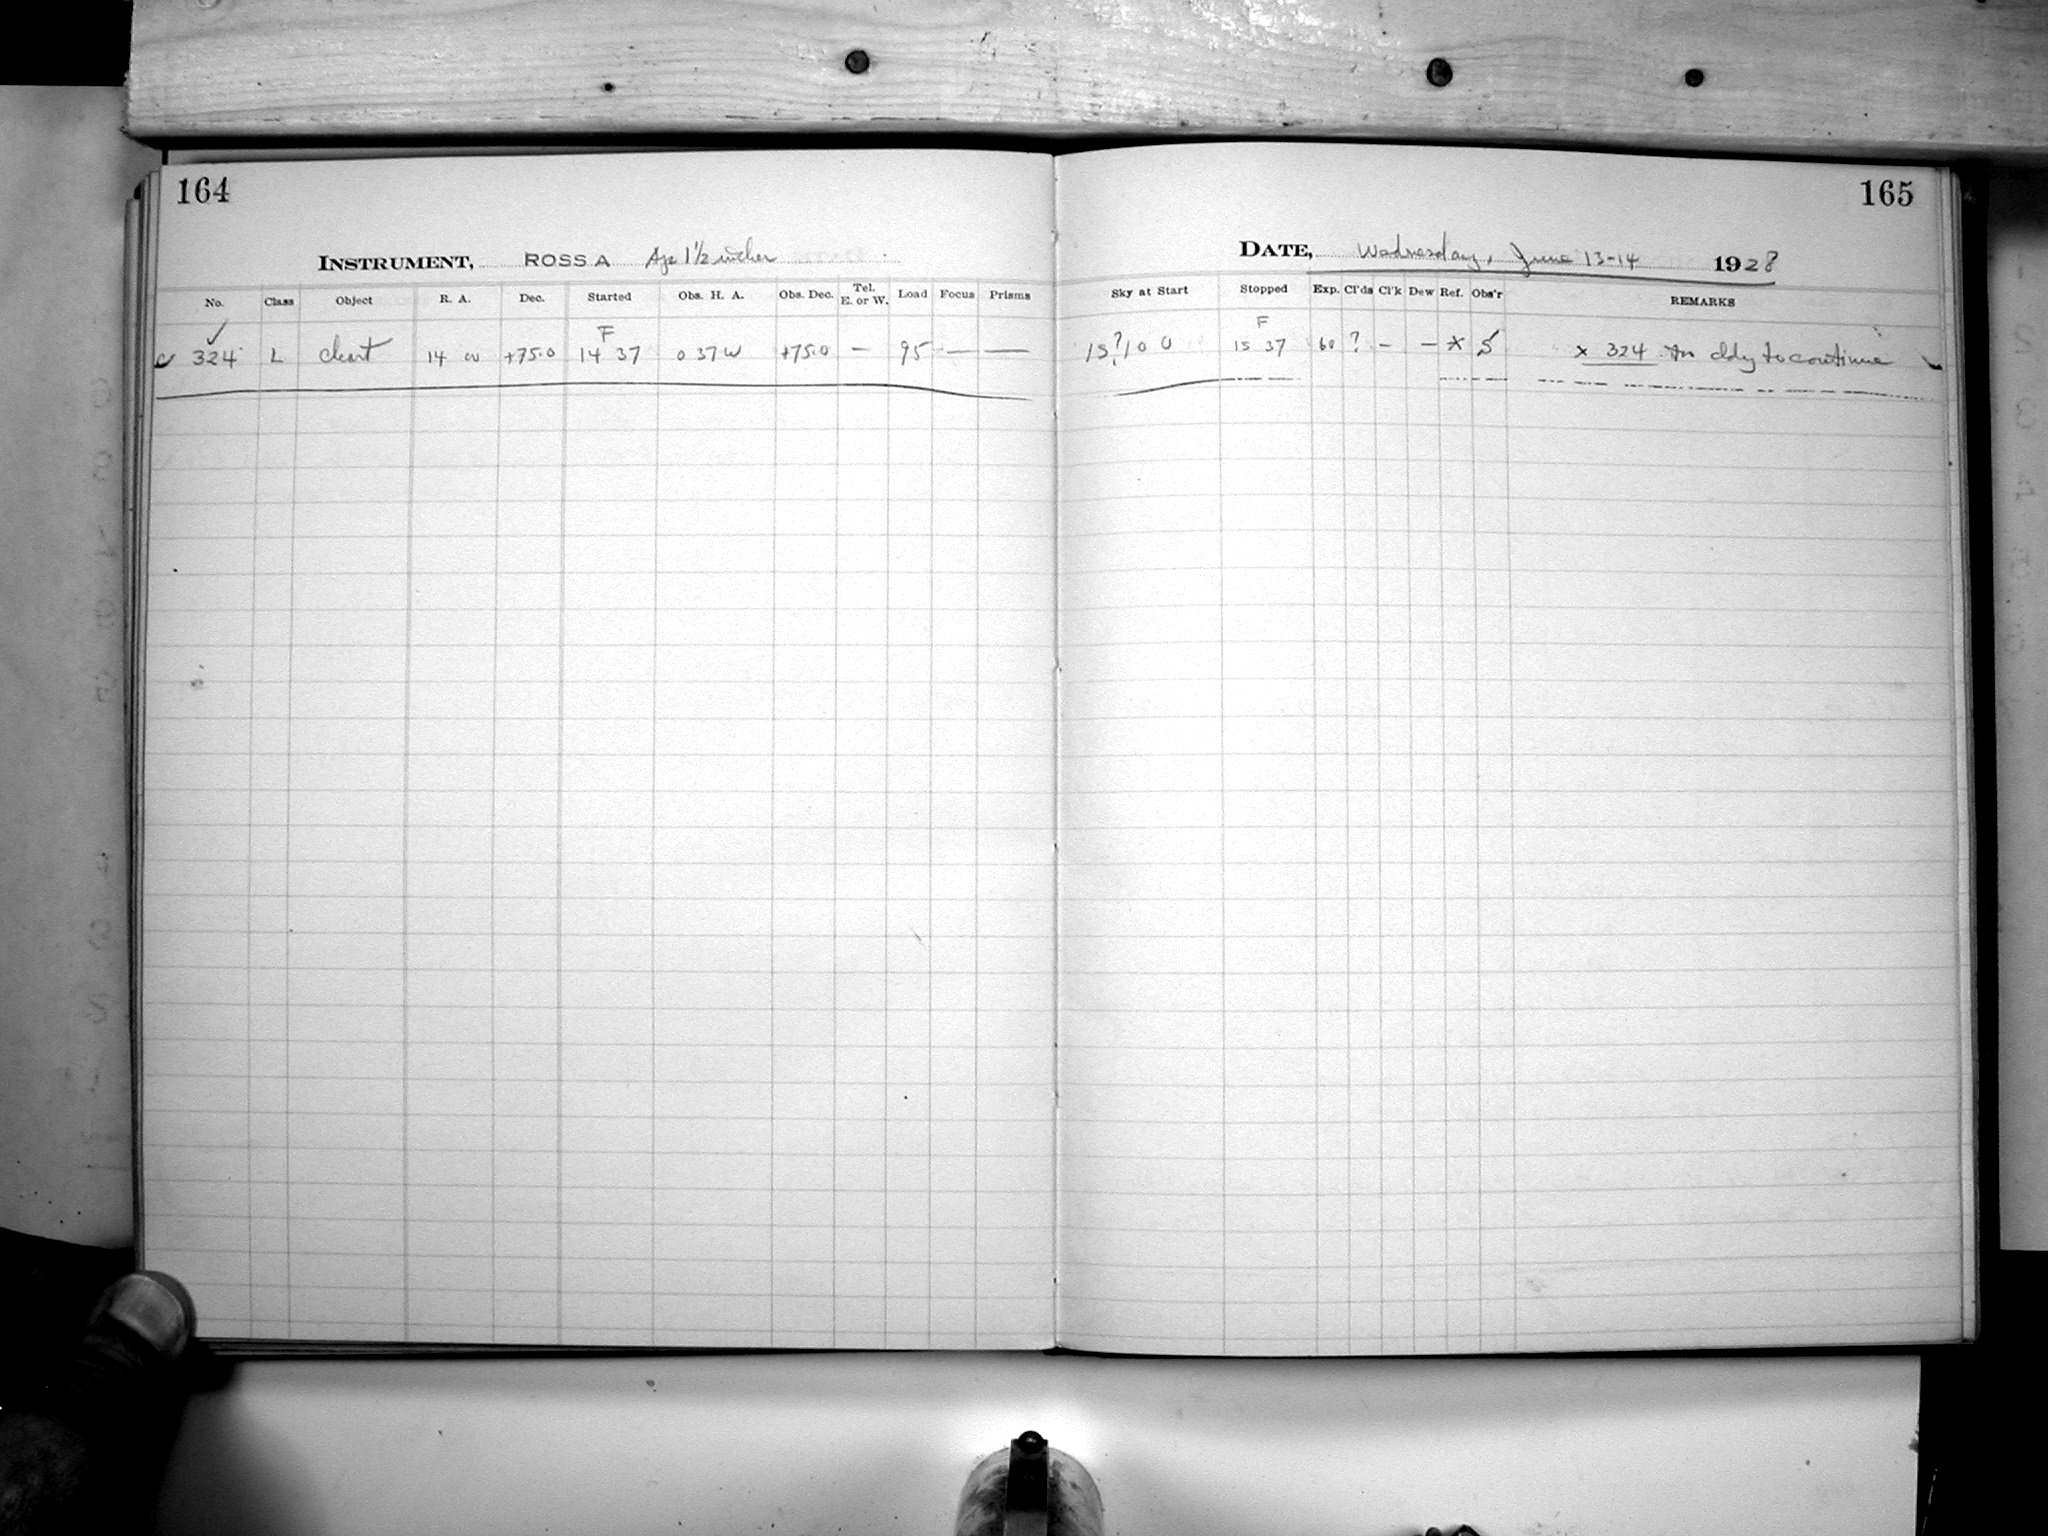 164
INSTRUMENT, ROSS A Ap 1½ inches
No. Class Object R. A. Dec. Started Obs. H. A. Obs. Dec. Tel. E. or W. Load Focus Prisms
✓ F
324 L chart 14 00 +75.0 14 37 0 37 W +75.0 — 95 — —
165
DATE, Wednesday, June 13-14 1928
Sky at Start Stopped Exp. Cl'ds Cl'k Dew Ref. Obs'r REMARKS
F
15 ? 10 0 15 37 60 ? – – x S x 324 Too cldy to continue